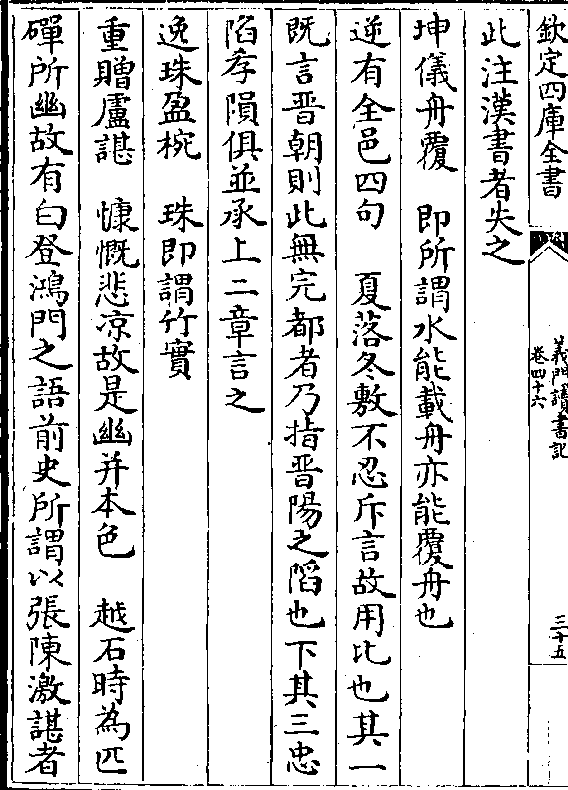 欽定四庫全書
義門讀書記
卷四十六
三十五
此注漢書者失之
坤儀舟覆　即所謂水能載舟亦能覆舟也
逆有全邑四句　夏落冬敷不忍斥言故用比也其一
既言晉朝則此無完都者乃指晉陽之䧟也下其三忠
䧟孝隕俱並承上二章言之
逸珠盈椀　珠即謂竹實
重贈盧諶　慷慨悲凉故是幽并本色　越石時為匹
磾所幽故有白登鴻門之語前史所謂以張陳激諶者